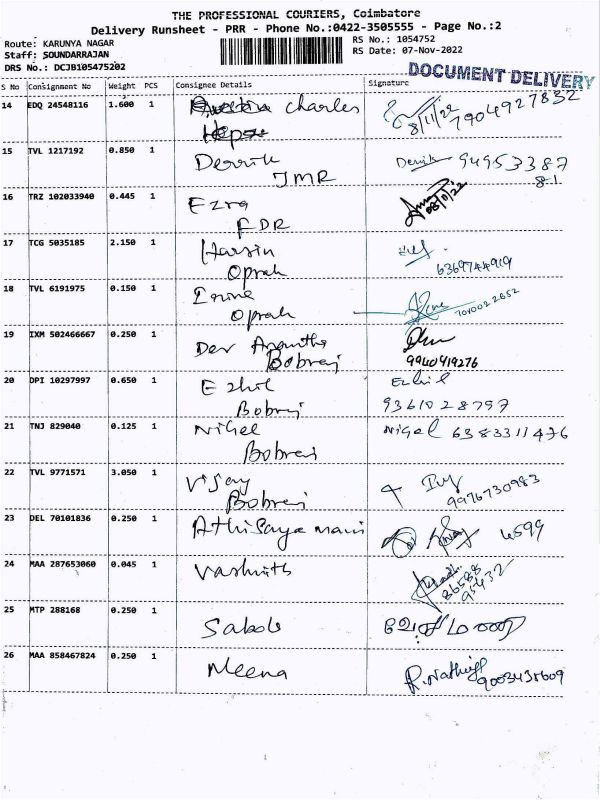 THE PROFESSIONAL COURIERS, Coimbatore
Delivery Runsheet - PRR - Phone No.:0422-3505555 - Page No.:2
Route: KARUNYA NAGAR RS No.: 1054752
Staff: SOUNDARRAJAN RS Date: 07-Nov-2022
DRS No.: DCJB105475202
DOCUMENT DELIVERY
S No Consignment No Weight PCS Consignee Details Signature
14 EDQ 24548116 1.600 1 charles 8/11/22 7904927832
15 TVL 1217192 0.850 1 Derrik Derrik 94953387
JMR 81
16 TRZ 102033940 0.445 1 Ezra 08/11/22
FDR
17 TCG 5035185 2.150 1 Harsin
Oprah 6369744919
18 TVL 6191975 0.150 1
Oprah 7010022652
19 IXM 502466667 0.250 1 Dev Anantha
Bobrej 9940419276
20 DPI 10297997 0.650 1 Ezhil Ezhil
Bobrej 9361028797
21 TNJ 829040 0.125 1 Nigel Nigel 6383311476
Bobrej
22 TVL 9771571 3.050 1 Vijay
Bobrej 9976730983
23 DEL 70101836 0.250 1 Athisaya mani 4599
24 MAA 287653060 0.045 1 Vashnith 86588
95432
25 MTP 288168 0.250 1
26 MAA 858467824 0.250 1 Meena 9003435609